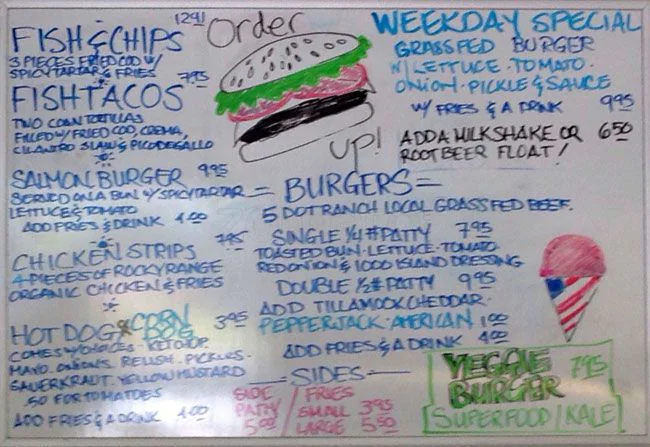 FISH & CHIPS 12.91
3 PIECES FRIED COD W/
SPICY TARTAR & FRIES
FISH TACOS 7.95
TWO CORN TORTILLAS
FILLED W/ FRIED COD, CREMA,
CILANTRO SLAW & PICO DE GALLO
SALMON BURGER 9.95
SERVED ON A BUN W/ SPICY TARTAR
LETTUCE & TOMATO
ADD FRIES & DRINK 4.00
CHICKEN STRIPS 7.95
4 PIECES OF ROCKY RANGE
ORGANIC CHICKEN & FRIES
HOT DOG & CORN DOG 3.95
COMES W/ CHOICES - KETCHUP.
MAYO. ONIONS. RELISH. PICKLES.
SAUERKRAUT. YELLOW MUSTARD
.50 FOR TOMATOES
ADD FRIES & A DRINK 4.00
Order
UP!
WEEKDAY SPECIAL
GRASSFED BURGER
W/ LETTUCE - TOMATO -
ONION - PICKLE & SAUCE
W/ FRIES & A DRINK 9.95
ADD A MILKSHAKE OR 6.50
ROOTBEER FLOAT!
= BURGERS =
5 DOT RANCH LOCAL GRASSFED BEEF.
SINGLE 1/4# PATTY 7.95
TOASTED BUN - LETTUCE - TOMATO
RED ONION & 1000 ISLAND DRESSING
DOUBLE 1/2# PATTY 9.95
ADD TILLAMOOK CHEDDAR -
PEPPERJACK - AMERICAN 1.00
ADD FRIES & A DRINK 4.00
— SIDES —
SIDE
PATTY
5.00
FRIES
SMALL 3.95
LARGE 5.50
VEGGIE 7.95
BURGER
SUPERFOOD / KALE